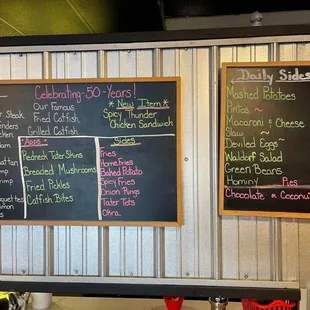 Celebrating - 50 - Years!
Steak
Our Famous
Fried Catfish
Grilled Catfish
* New Item *
Spicy Thunder
Chicken Sandwich
Apps
Redneck Tater Skins
Breaded Mushrooms
Fried Pickles
Catfish Bites
Sides
Fries
Home Fries
Baked Potato
Spicy Fries
Onion Rings
Tater Tots
Okra
Daily Sides
Mashed Potatoes
Pintos ~
Macaroni & Cheese
Slaw ~
Deviled Eggs ~
Waldorf Salad
Green Beans
Hominy Pies
Chocolate & Coconut